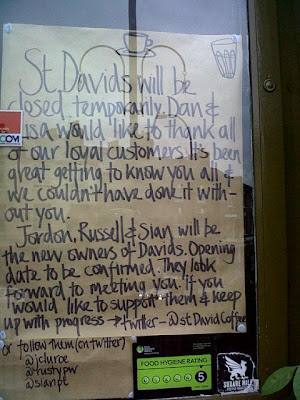 St. Davids will be
closed temporarily. Dan &
Lusa would like to thank all
of our loyal customers. It's been
great getting to know you all &
we couldn't have done it with-
out you.
Jordon, Russell & Sian will be
the new owners of Davids. Opening
date to be confirmed. They look
forward to meeting you. If you
would like to support them & keep
up with progress → twitter - @st.DavidCoffee
or follow them (on twitter)
@rustypw
@sianpt
.COM
FOOD HYGIENE RATING
5
SQUARE MILE